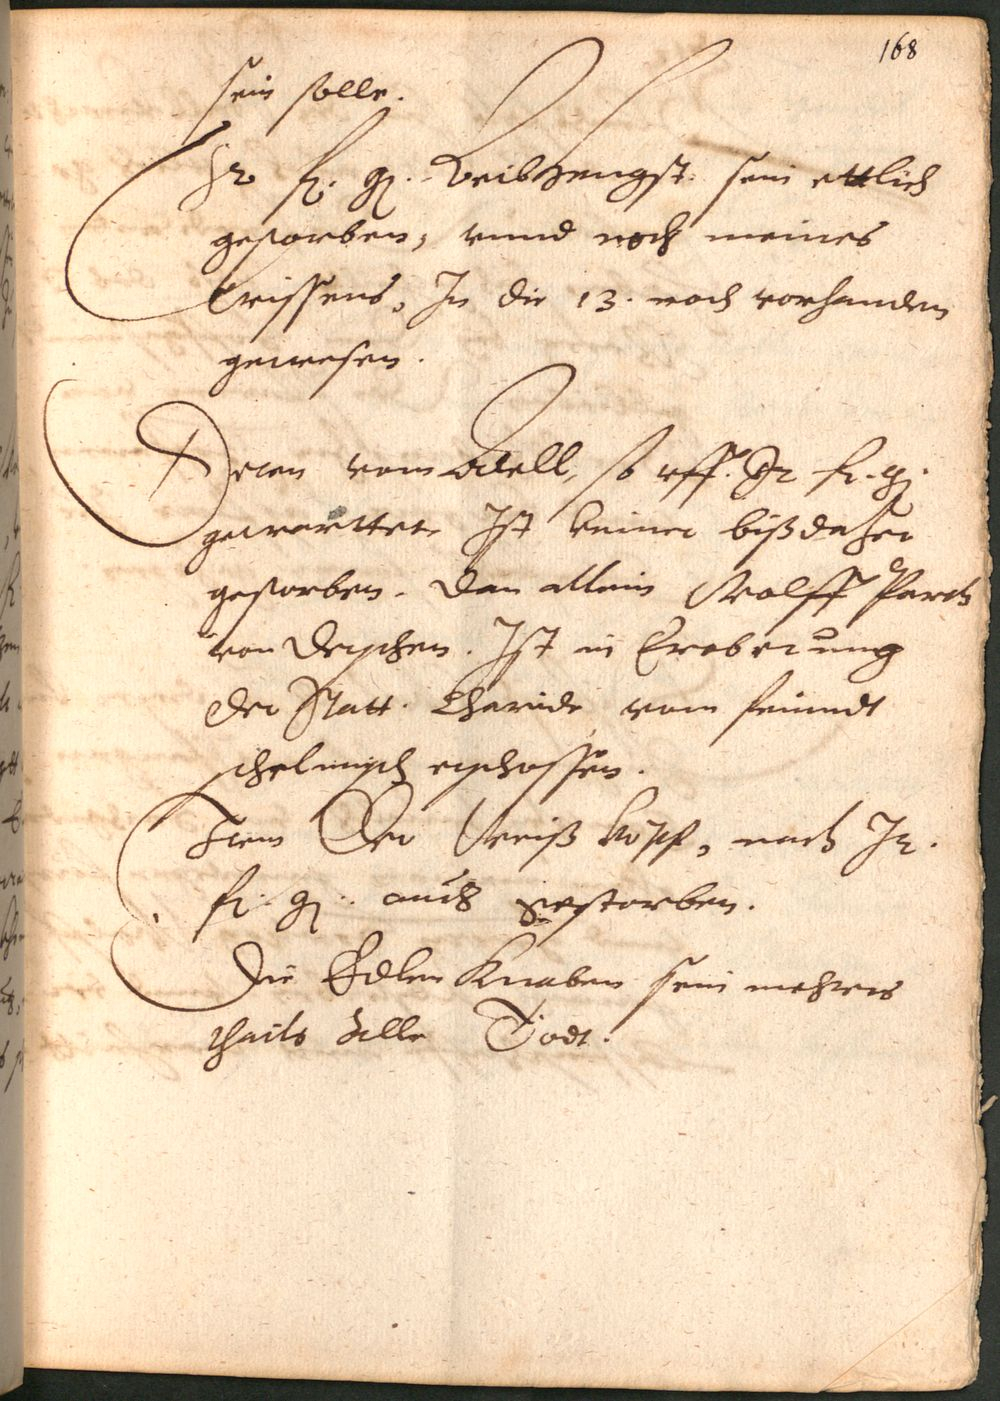 168
sein solle.
Ir f. g. Leibhengst sein ettlich
gestorben, vnnd noch meines
wissens, In die 13. noch vorhanden
gewesen.
Deren vom Adell, so vff Ir f. g.
gewarttet. Ist keiner bißdaher
gestorben. Dan allein Wolff
von . Ist in Eroberung
der Statt. vom feinndt
schelmisch erschossen.
Item Der Weiß Kopff, nach Ir.
f. g. auch gestorben.
Die Edlen Knaben sein mehrers
theils Alle Todt.